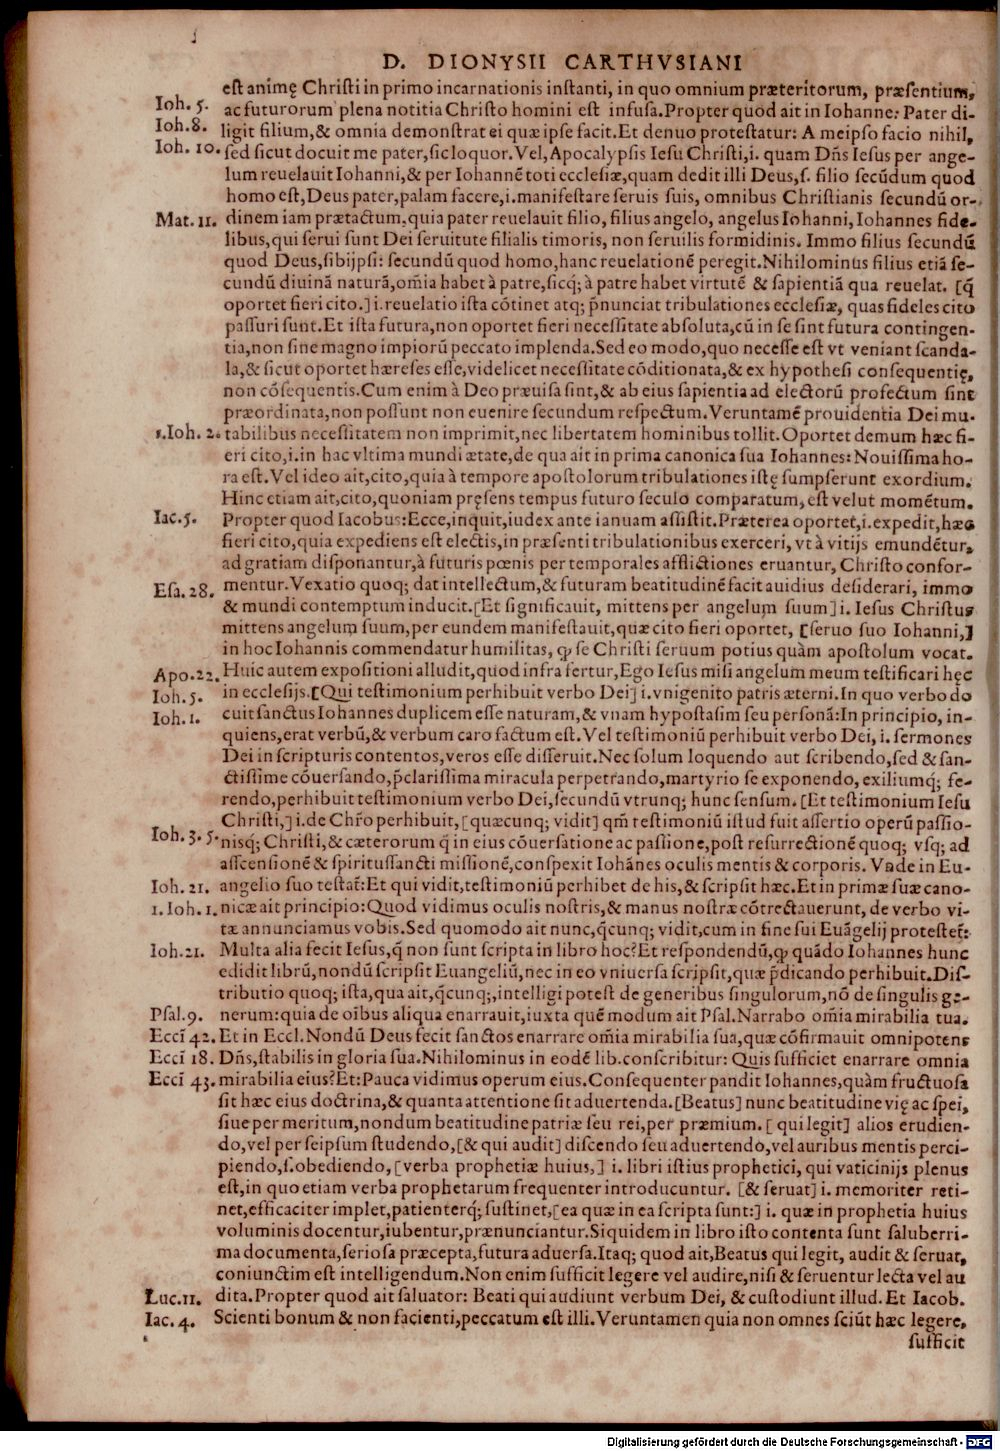 D. DIONYSII CARTHVSIANI
est animę Christi in primo incarnationis instanti, in quo omnium præteritorum, præsentium,
Ioh. 5. ac futurorum plena notitia Christo homini est infusa. Propter quod ait in Iohanne: Pater di-
Ioh. 8. ligit filium, & omnia demonstrat ei quæ ipse facit. Et denuo protestatur: A meipso facio nihil,
Ioh. 10. sed sicut docuit me pater, sic loquor. Vel, Apocalypsis Iesu Christi, i. quam Dñs Iesus per ange-
lum reuelauit Iohanni, & per Iohannẽ toti ecclesiæ, quam dedit illi Deus, s. filio secũdum quod
homo est, Deus pater, palam facere, i. manifestare seruis suis, omnibus Christianis secundũ or-
Mat. 11. dinem iam prætactum, quia pater reuelauit filio, filius angelo, angelus Iohanni, Iohannes fide-
libus, qui serui sunt Dei seruitute filialis timoris, non seruilis formidinis. Immo filius secundũ
quod Deus, sibijpsi: secundũ quod homo, hanc reuelationẽ peregit. Nihilominus filius etiã se-
cundũ diuinã naturã, om̃ia habet à patre, sicq; à patre habet virtutẽ & sapientiã qua reuelat. [q̃
oportet fieri cito.] i. reuelatio ista cõtinet atq; p̃nunciat tribulationes ecclesiæ, quas fideles cito
passuri sunt. Et ista futura, non oportet fieri necessitate absoluta, cũ in se sint futura contingen-
tia, non sine magno impiorũ peccato implenda. Sed eo modo, quo necesse est vt veniant scanda-
la, & sicut oportet hæreses esse, videlicet necessitate cõditionata, & ex hypothesi consequentię,
non cõsequentis. Cum enim à Deo præuisa sint, & ab eius sapientia ad electorũ profectum sint
præordinata, non possunt non euenire secundum respectum. Veruntamẽ prouidentia Dei mu-
1. Ioh. 2. tabilibus necessitatem non imprimit, nec libertatem hominibus tollit. Oportet demum hæc fi-
eri cito, i. in hac vltima mundi ætate, de qua ait in prima canonica sua Iohannes: Nouissima ho-
ra est. Vel ideo ait, cito, quia à tempore apostolorum tribulationes istę sumpserunt exordium.
Hinc etiam ait, cito, quoniam pręsens tempus futuro seculo comparatum, est velut momẽtum.
Iac. 5. Propter quod Iacobus: Ecce, inquit, iudex ante ianuam assistit. Præterea oportet, i. expedit, hæc
fieri cito, quia expediens est electis, in præsenti tribulationibus exerceri, vt à vitijs emundẽtur,
ad gratiam disponantur, à futuris pœnis per temporales afflictiones eruantur, Christo confor-
Esa. 28. mentur. Vexatio quoq; dat intellectum, & futuram beatitudinẽ facit auidius desiderari, immo
& mundi contemptum inducit. [Et significauit, mittens per angelum suum] i. Iesus Christus
mittens angelum suum, per eundem manifestauit, quæ cito fieri oportet, [seruo suo Iohanni,]
in hoc Iohannis commendatur humilitas, ꝙ se Christi seruum potius quàm apostolum vocat.
Apo. 22. Huic autem expositioni alludit, quod infra fertur, Ego Iesus misi angelum meum testificari hęc
Ioh. 5. in ecclesijs. [Qui testimonium perhibuit verbo Dei] i. vnigenito patris æterni. In quo verbo do
Ioh. 1. cuit sanctus Iohannes duplicem esse naturam, & vnam hypostasim seu personã: In principio, in-
quiens, erat verbũ, & verbum caro factum est. Vel testimoniũ perhibuit verbo Dei, i. sermones
Dei in scripturis contentos, veros esse disseruit. Nec solum loquendo aut scribendo, sed & san-
ctissime cõuersando, p̃clarissima miracula perpetrando, martyrio se exponendo, exiliumq; fe-
rendo, perhibuit testimonium verbo Dei, secundũ vtrunq; hunc sensum. [Et testimonium Iesu
Christi,] i. de Chr̃o perhibuit, [quæcunq; vidit] qm̃ testimoniũ istud fuit assertio operũ passio-
Ioh. 3. 5. nisq; Christi, & cæterorum q̃ in eius cõuersatione ac passione, post resurrectionẽ quoq; vsq; ad
assensionẽ & spiritussancti missionẽ, conspexit Iohãnes oculis mentis & corporis. Vnde in Eu-
Ioh. 21. angelio suo testat̃: Et qui vidit, testimoniũ perhibet de his, & scripsit hæc. Et in primæ suæ cano-
1. Ioh. 1. nicæ ait principio: Quod vidimus oculis nostris, & manus nostræ cõtrectauerunt, de verbo vi-
tæ annunciamus vobis. Sed quomodo ait nunc, q̃cunq; vidit, cum in fine sui Euãgelij protestet̃:
Ioh. 21. Multa alia fecit Iesus, q̃ non sunt scripta in libro hoc? Et respondendũ, ꝙ quãdo Iohannes hunc
edidit librũ, nondũ scripsit Euangeliũ, nec in eo vniuersa scripsit, quæ p̃dicando perhibuit. Dis-
tributio quoq; ista, qua ait, q̃cunq;, intelligi potest de generibus singulorum, nõ de singulis ge-
Psal. 9. nerum: quia de oibus aliqua enarrauit, iuxta quẽ modum ait Psal. Narrabo om̃ia mirabilia tua.
Eccĩ 42. Et in Eccl. Nondũ Deus fecit sanctos enarrare om̃ia mirabilia sua, quæ cõfirmauit omnipotens
Eccĩ 18. Dñs, stabilis in gloria sua. Nihilominus in eodẽ lib. conscribitur: Quis sufficiet enarrare omnia
Eccĩ 43. mirabilia eius? Et: Pauca vidimus operum eius. Consequenter pandit Iohannes, quàm fructuosa
sit hæc eius doctrina, & quanta attentione sit aduertenda. [Beatus] nunc beatitudine vię ac spei,
siue per meritum, nondum beatitudine patriæ seu rei, per præmium. [qui legit] alios erudien-
do, vel per seipsum studendo, [& qui audit] discendo seu aduertendo, vel auribus mentis perci-
piendo, s. obediendo, [verba prophetiæ huius,] i. libri istius prophetici, qui vaticinijs plenus
est, in quo etiam verba prophetarum frequenter introducuntur. [& seruat] i. memoriter reti-
net, efficaciter implet, patienterq; sustinet, [ea quæ in ea scripta sunt:] i. quæ in prophetia huius
voluminis docentur, iubentur, prænunciantur. Siquidem in libro isto contenta sunt saluberri-
ma documenta, seriosa præcepta, futura aduersa. Itaq; quod ait, Beatus qui legit, audit & seruat,
coniunctim est intelligendum. Non enim sufficit legere vel audire, nisi & seruentur lecta vel au
Luc. 11. dita. Propter quod ait saluator: Beati qui audiunt verbum Dei, & custodiunt illud. Et Iacob.
Iac. 4. Scienti bonum & non facienti, peccatum est illi. Veruntamen quia non omnes sciũt hæc legere,
sufficit
Digitalisierung gefördert durch die Deutsche Forschungsgemeinschaft - DFG